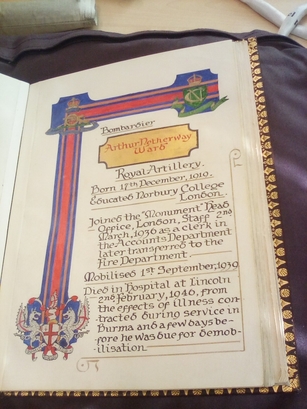 Bombardier
Arthur Netherway
Ward
Royal Artillery.
Born 17th December, 1919.
Educated Norbury College
London.
Joined the "Monument" Head
Office, London, Staff 2nd
March, 1936 as a clerk in
the Accounts Department
later transferred to the
Fire Department.
Mobilised 1st September, 1939
Died in Hospital at Lincoln
2nd February, 1946, from
the effects of illness con-
tracted during service in
Burma and a few days be-
fore he was due for demob-
ilisation.